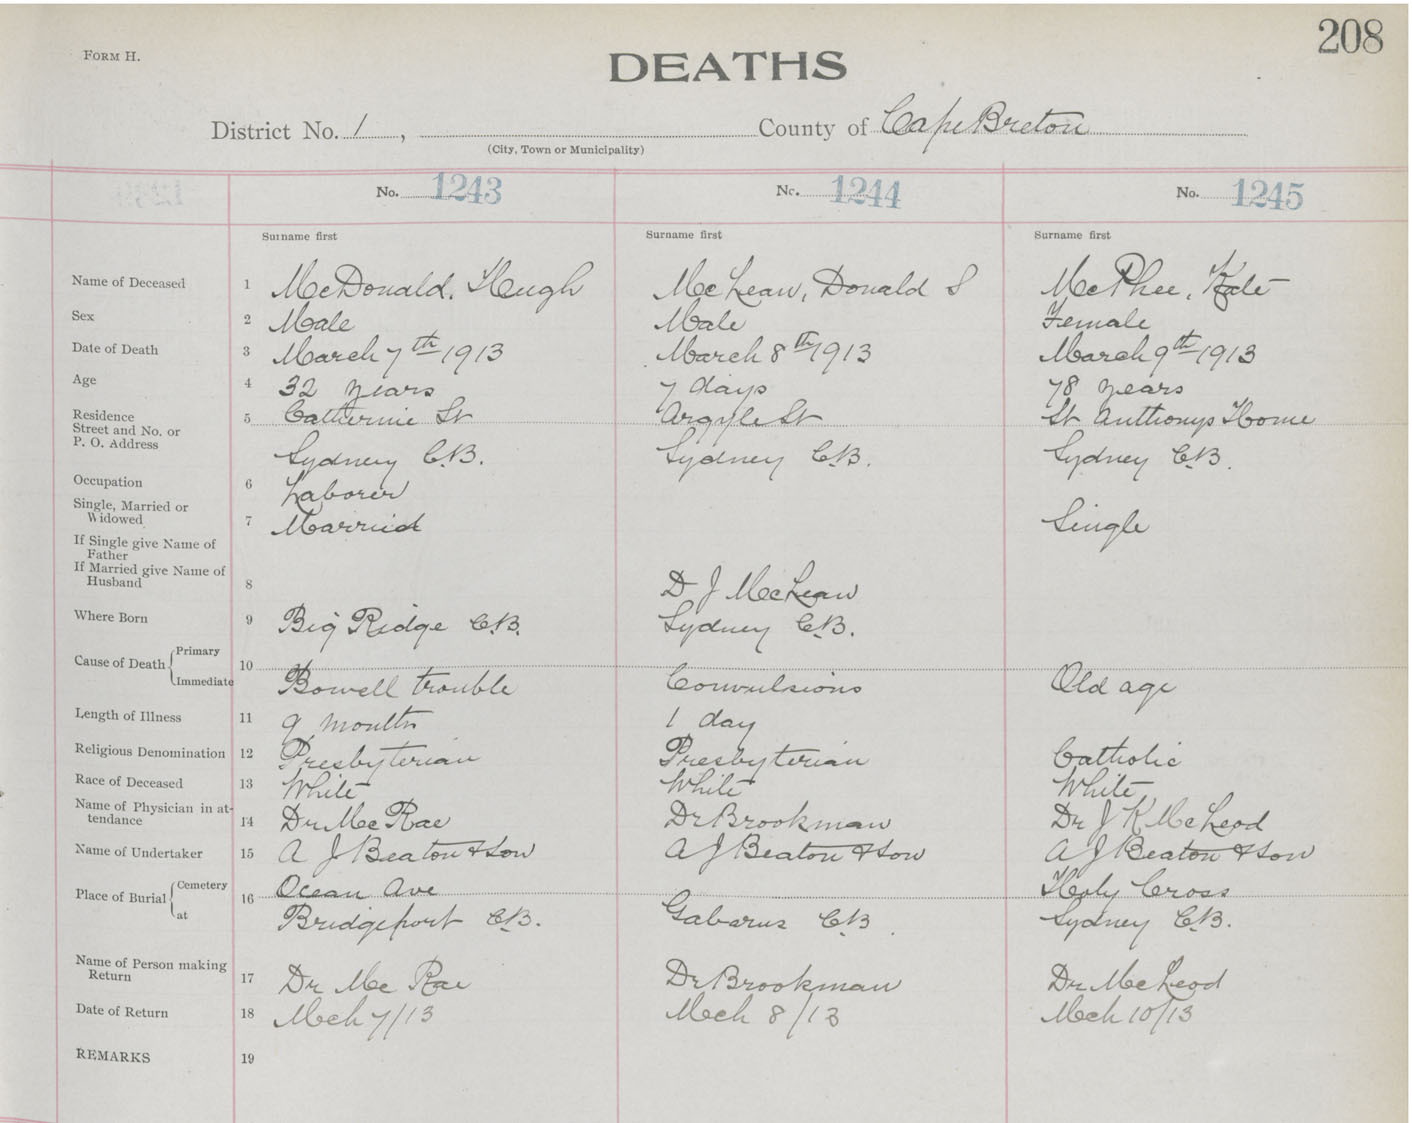 208
FORM H.
DEATHS
District No. 1, County of Cape Breton
(City, Town or Municipality)
No. 1243 No. 1244 No. 1245
Surname first Surname first Surname first
Name of Deceased 1 McDonald, Hugh McLean, Donald S McPhee, Kate
Sex 2 Male Male Female
Date of Death 3 March 7th 1913 March 8th 1913 March 9th 1913
Age 4 32 years 7 days 78 years
Residence
Street and No. or 5 Catherine St Argyle St St Anthonys Home
P. O. Address
Sydney C.B. Sydney C.B. Sydney C.B.
Occupation 6 Laborer
Single, Married or
Widowed 7 Married Single
If Single give Name of
Father
If Married give Name of
Husband 8 D J McLean
Where Born 9 Big Ridge C.B. Sydney C.B.
Cause of Death Primary 10
Immediate Bowell trouble Convulsions Old age
Length of Illness 11 9 months 1 day
Religious Denomination 12 Presbyterian Presbyterian Catholic
Race of Deceased 13 White White White
Name of Physician in at-
tendance 14 Dr McRae Dr Brookman Dr J K McLeod
Name of Undertaker 15 A J Beaton & Son A J Beaton & Son A J Beaton & Son
Place of Burial Cemetery 16 Ocean Ave Holy Cross
at Bridgeport C.B. Gabarus C.B. Sydney C.B.
Name of Person making
Return 17 Dr McRae Dr Brookman Dr McLeod
Date of Return 18 Mch 7/13 Mch 8/13 Mch 10/13
REMARKS 19